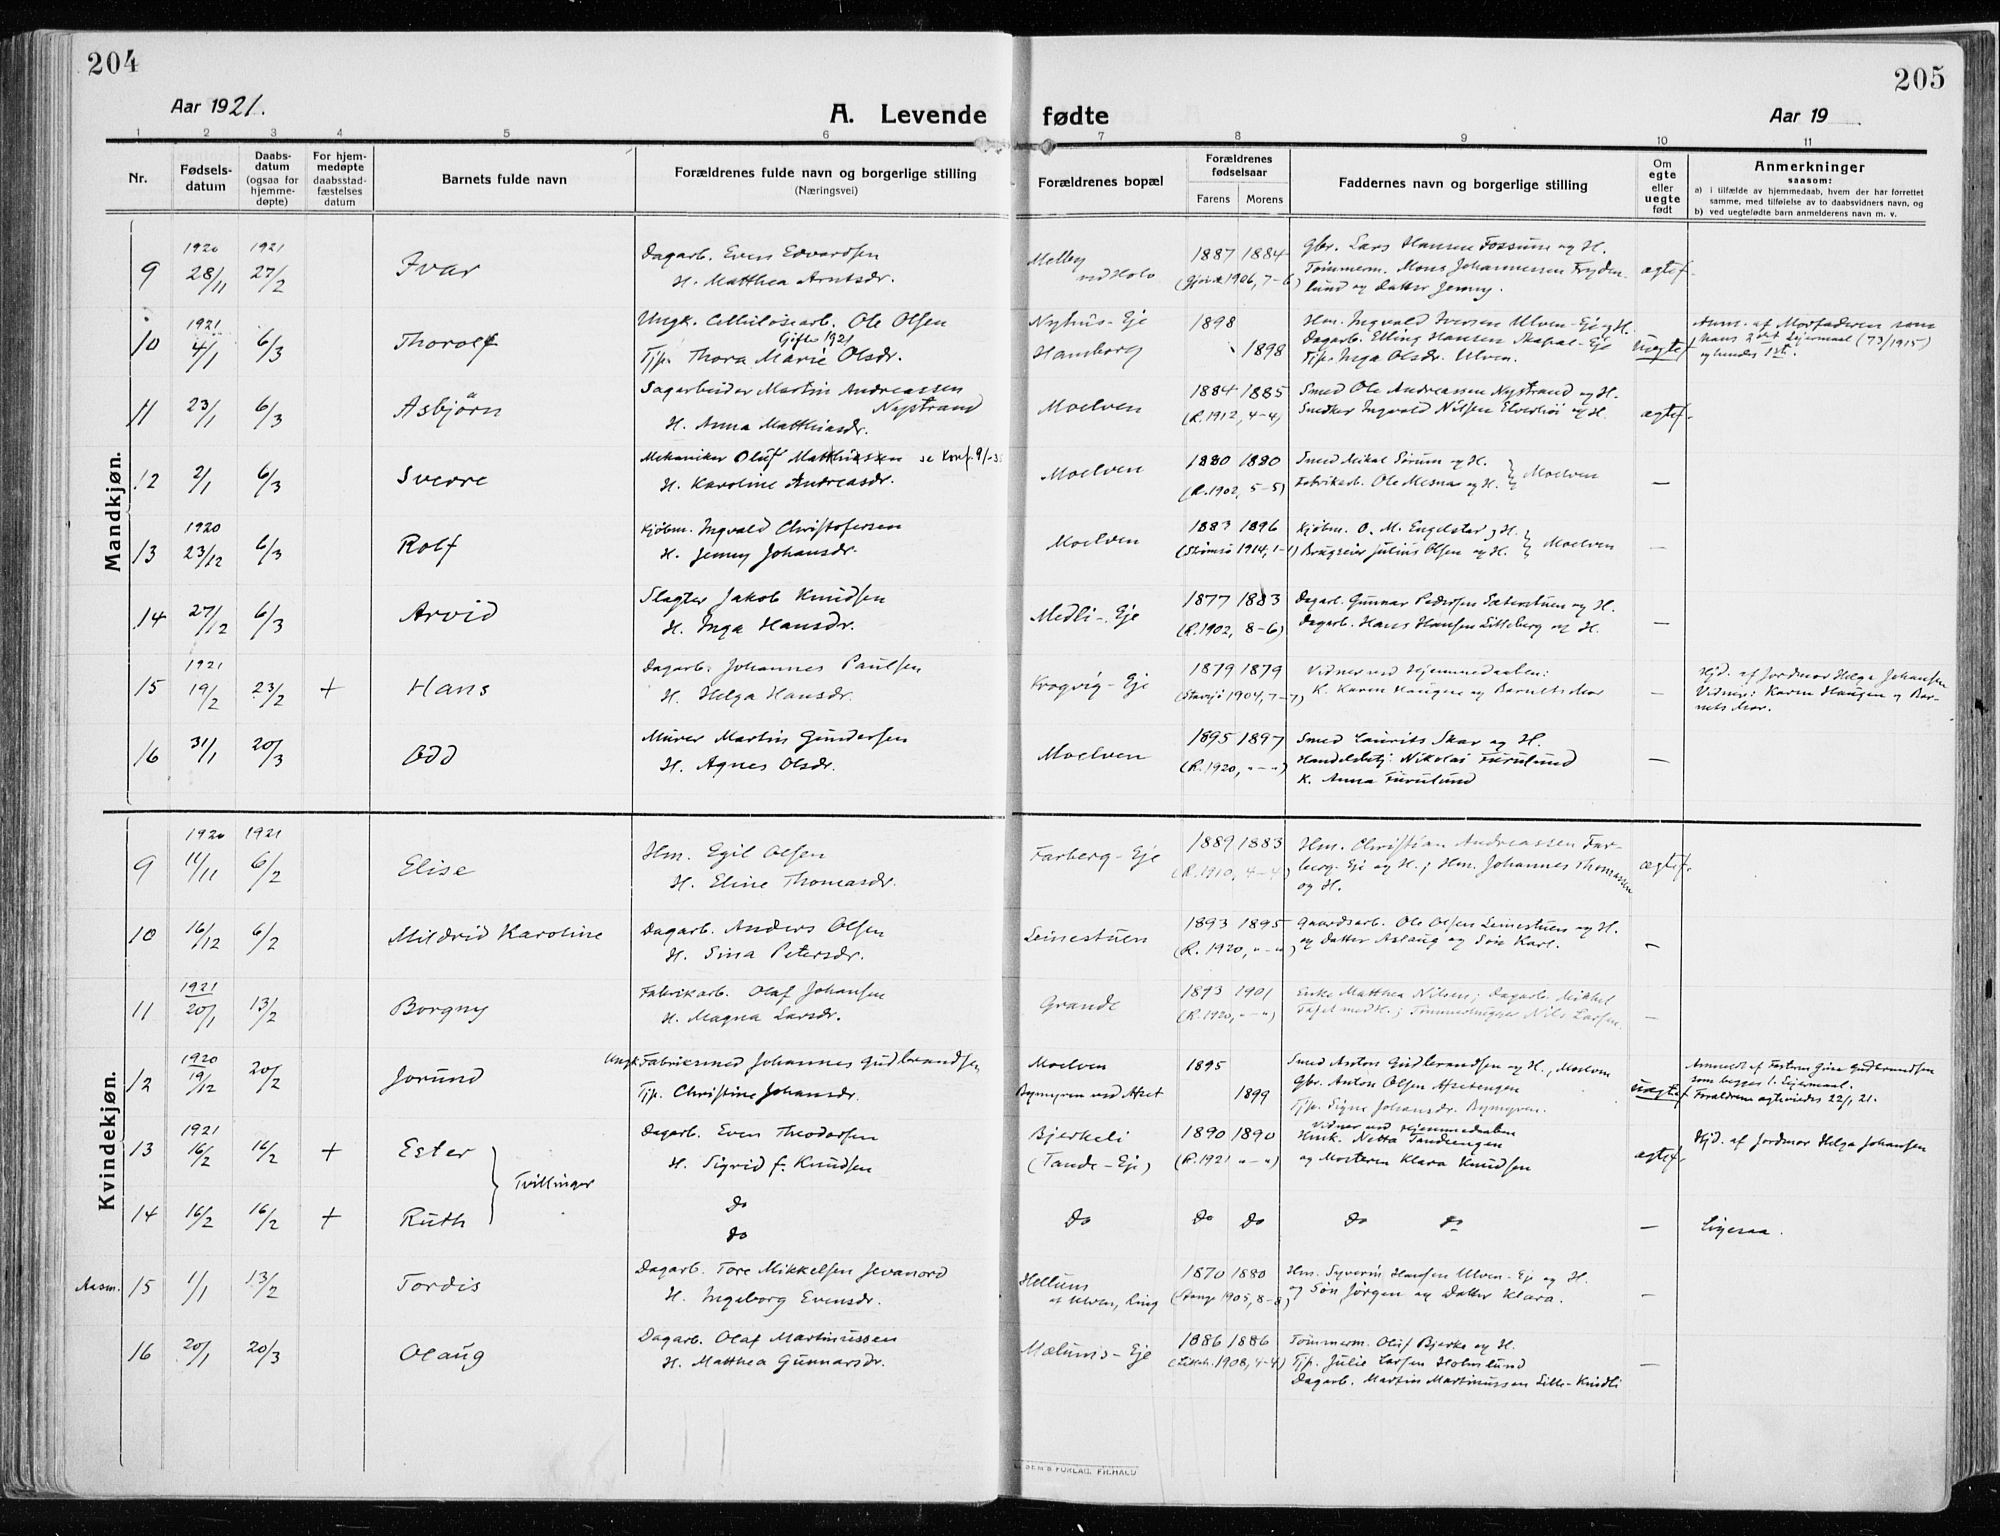 204
205
Aar 1921.
A. Levende fødte
Aar 19
1 2 3 4 5 6 7 8 9 10 11
Nr.
Fødsels-
datum
Daabs-
datum
(ogsaa for
hjemme-
døpte)
For hjem-
medøpte
daabsstad-
fæstelses
datum
Barnets fulde navn
Forældrenes fulde navn og borgerlige stilling
(Næringsvei)
Forældrenes bopæl
Forældrenes
fødselsaar
Farens Morens
Faddernes navn og borgerlige stilling
Om
egte
eller
uegte
født
Anmerkninger
saasom:
a) i tilfælde av hjemmedaab, hvem der har forrettet
samme, med tilføielse av to daabsvidners navn, og
b) ved uegtefødte barn anmelderens navn m. v.
Mandkjøn.
1920 1921
9 28/11 27/2 Ivar
Dagarb. Even Edvardsen
H. Matthea Arntsdr.
Melby
ved Holo
1887 1884
(Gjøvik 1906, 7-6)
Gbr. Lars Hansen Fossum og H.
Tømmerm. Mons Johannessen Fryden-
lund og Datter Jenny.
ægtef.
1921
10 4/1 6/3 Thorolf
Ungk. Cellulosearb. Ole Olsen
Gifte 1921
Tjp. Thora Marie Olsdr.
Nyhus-Eje
Hamborg
1898
1898
Hm. Ingvald Iversen Ulven-Eje og H.
Dagarb. Elling Hansen Skapal-Eje
Tjp. Inga Olsdr. Ulven.
Uegtef.
Anm. af Morfaderen som
hans 2det Lejermaal (73/1915)
og hendes 1ste.
11 23/1 6/3 Asbjørn
Sagarbeider Martin Andreassen
Nystrand
H. Anna Matthiasdr.
Moelven
1884 1885
(R. 1912, 4-4)
Smed Ole Andreassen Nystrand og H.
Snedker Ingvald Nilsen Elverhøi og H.
ægtef.
12 2/1 6/3 Sverre
Mekaniker Oluf Matthissen se Konf. 9/-35
H. Karoline Andreasdr.
Moelven
1880 1880
(R. 1902, 5-5)
Smed Mikal Sørum og H.
Fabrikarb. Ole Mesna og H. } Moelven
—
1920
13 23/12 6/3 Rolf
Kjøbm. Ingvald Christofersen
H. Jenny Johansdr.
Moelven
1883 1896
(Strømsø 1914, 1-1)
Kjøbm. O. M. Engelstad og H.
Brugseier Julius Olsen og H. } Moelven
—
14 27/12 6/3 Arvid
Slagter Jakob Knudsen
H. Inga Hansdr.
Medli-Eje
1877 1883
(R. 1902, 8-6)
Dagarb. Gunnar Pedersen Sæterstuen og H.
Dagarb. Hans Hansen Litteberg og H.
—
1921
15 19/2 23/2 + Hans
Dagarb. Johannes Paulsen
H. Helga Hansdr.
Krogvig-Eje
1879 1879
(Stavsjø 1904, 7-7)
Vidner ved Hjemmedaaben:
K. Karen Haugne og Barnets Mor
—
Hjd. af Jordmor Helga Johansen
Vidner: Karen Haugen og Bar-
nets Mor.
16 31/1 20/3 Odd
Murer Martin Gundersen
H. Agnes Olsdr.
Moelven
1895 1897
(R. 1920, „-„)
Smed Laurits Skar og H.
Handelsbetj. Nikolai Furulund
K. Anna Furulund
—
Kvindekjøn.
1920 1921
9 11/11 6/2 Elise
Hm. Egil Olsen
H. Eline Thomasdr.
Farberg-Eje
1889 1883
(R. 1910, 4-4)
Hm. Christian Andreassen Far-
berg-Eje og H.; Hm. Johannes Thomassen
og H.
ægtef.
10 16/12 6/2 Mildrid Karoline
Dagarb. Anders Olsen
H. Sina Petersdr.
Leinestuen
1893 1895
(R. 1920, „-„)
Gaardsarb. Ole Olsen Leinestuen og H.
og Datter Aslaug og Søn Karl.
—
1921
11 20/1 13/2 Borgny
Fabrikarb. Olaf Johansen
H. Magna Larsdr.
Grande
1893 1901
(R. 1920, „-„)
Enke Matthea Nilsen; Dagarb. Mikkel
med H.; Tømmerhugger Nils Larsen.
—
1920
12 19/12 20/2 Jorund
Ungk. Fabriksmed Johannes Gudbrandsen
Tjp. Christine Johansdr.
Moelven
Bymyren ved Afset
1895
1899
Smed Anton Gudbrandsen og H., Moelven
Gbr. Anton Olsen Afsetengen
Tjp. Signe Johansdr. Bymyren.
uegtef.
Anmeldt af Fasteren Gina Gudbrandsen
som begges 1. Lejermaal.
Forældrene ægteviedes 22/1 21.
1921
13 16/2 16/2 + Ester
Dagarb. Even Theodorsen
H. Sigrid f. Knudsen
Bjerkeli
(Tande-Eje)
1890 1890
(R. 1921 „-„)
Vidner ved Hjemmedaaben
Husk. Netta Tandengen
og Mosteren Klara Knudsen
ægtef.
Hjd. af Jordmor Helga Johansen
} Tvillinger
14 16/2 16/2 + Ruth
Do
Do
Do
Do Do
Do Do
—
Ligesaa.
Aasm. 15 1/1 13/2 Tordis
Dagarb. Tore Mikkelsen Jevanord
H. Ingeborg Evensdr.
Hellum
af Ulven, Ring
1870 1880
(Stange 1905, 8-8)
Hm. Syverin Hansen Ulven-Eje og H.
og Søn Jørgen og Datter Klara.
—
16 20/1 20/3 Olaug
Dagarb. Olaf Martinussen
H. Matthea Gunnarsdr.
Mælums-Eje
1886 1886
(Lilleh. 1908, 4-4)
Tømmerm. Oluf Bjerke og H.
Tjp. Julie Larsen Holmslund
Dagarb. Martin Martinussen Lille-Kindli
—
FORLAG, FR.HALD